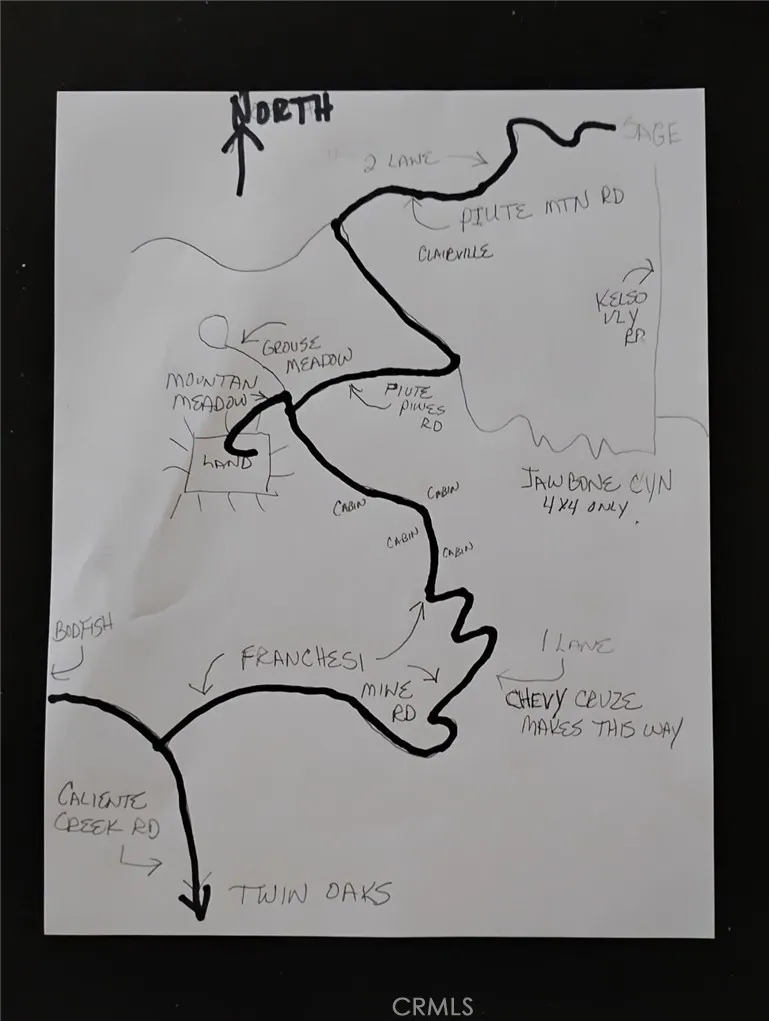 NORTH
SAGE
2 LANE
PIUTE MTN RD
CLAIRVILLE
KELSO
VLY
RD.
GROUSE
MEADOW
MOUNTAN
MEADOW
PIUTE
PINES
RD
LAND
JAWBONE CYN
4X4 ONLY.
CABIN
CABIN
CABIN
CABIN
BODFISH
FRANCHESI
1 LANE
MINE
RD
CHEVY CRUZE
MAKES THIS WAY
CALIENTE
CREEK RD
TWIN OAKS
CRMLS